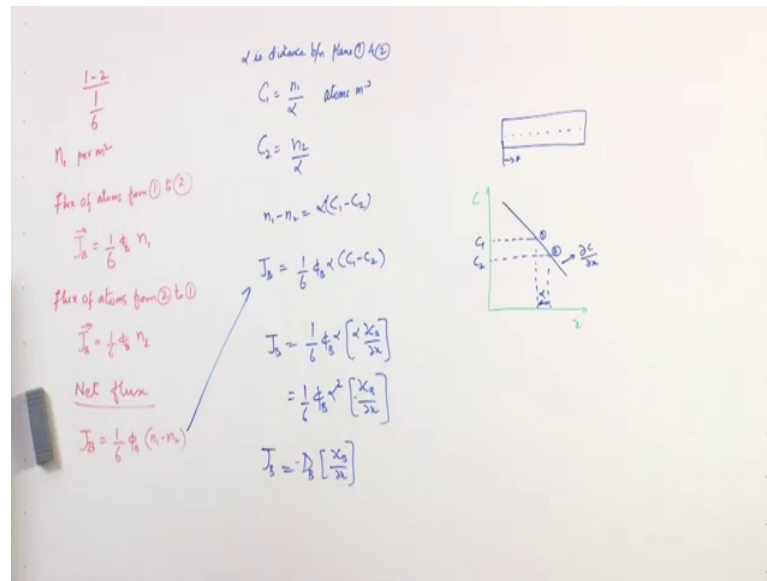 1-2
1
6
n₁ per m²
Flux of atoms from ① to ②
J⃗_B = 1/6 ϕ_B n₁
Flux of atoms from ② to ①
J⃗_B = 1/6 ϕ_B n₂
Net flux
J_B = 1/6 ϕ_B (n₁-n₂)
α is distance b/n plane ① & ②
C₁ = n₁/α atoms m⁻³
C₂ = n₂/α
n₁-n₂ = α(C₁-C₂)
J_B = 1/6 ϕ_B α (C₁-C₂)
J_B = - 1/6 ϕ_B α [α ∂C_B/∂x]
= 1/6 ϕ_B α² [∂C_B/∂x]
J_B = -D_B [∂C_B/∂x]
C
C₁
C₂
①
②
∂C/∂x
α
x